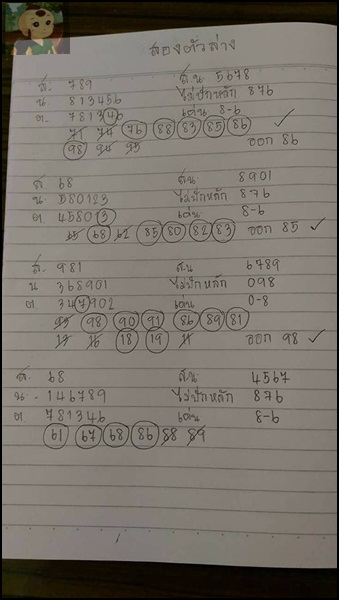 สองตัวล่าง
ส. 789 ส.น 5678
น 813456 ไม่ปักหลัก 876
ต. 781346 เด่น 8-6
71 74 76 88 83 85 86
98 94 95 ออก 86
ส 68 ส.น. 8901
น 580123 ไม่ปักหลัก 876
ต 45803 เด่น 8-6
65 68 62 85 80 82 83 ออก 85
ส. 981 ส.น 6789
น 368901 ไม่ปักหลัก 098
ต 347902 เด่น 0-8
93 98 90 91 86 89 81
13 16 18 19 11 ออก 98
ส. 68 ส.น. 4567
น. - 146789 ไม่ปักหลัก 876
ต. 781346 เด่น 8-6
61 67 68 86 88 89